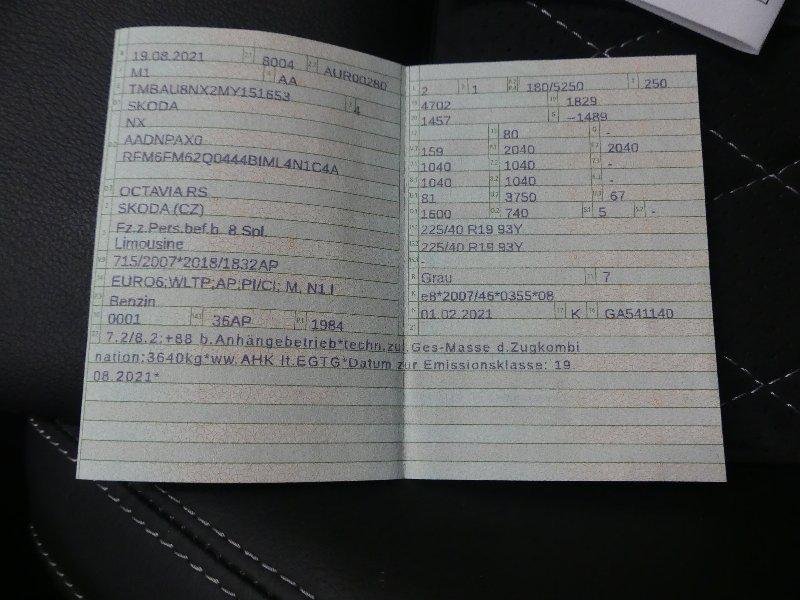 19.08.2021 8004 AUR00280
M1 AA
TMBAU8NX2MY151653 4
SKODA
NX
AADNPAX0
RFM6FM62Q0444BIML4N1C4A
OCTAVIA RS
SKODA (CZ)
Fz.z.Pers.bef.b. 8 Spl.
Limousine
715/2007*2018/1832AP
EURO6;WLTP;AP;PI/CI; M, N1 I
Benzin
0001 36AP 1984
2 1 180/5250 250
4702 1829
1457 –1489
80 -
159 2040 2040
1040 1040 -
1040 1040 -
81 3750 67
1600 740 5 -
225/40 R19 93Y
225/40 R19 93Y
-
Grau 7
e8*2007/46*0355*08
01.02.2021 K GA541140
7.2/8.2:+88 b.Anhängebetrieb*techn.zul.Ges-Masse d.Zugkombi
nation:3640kg*ww.AHK lt.EGTG*Datum zur Emissionsklasse: 19
08.2021*